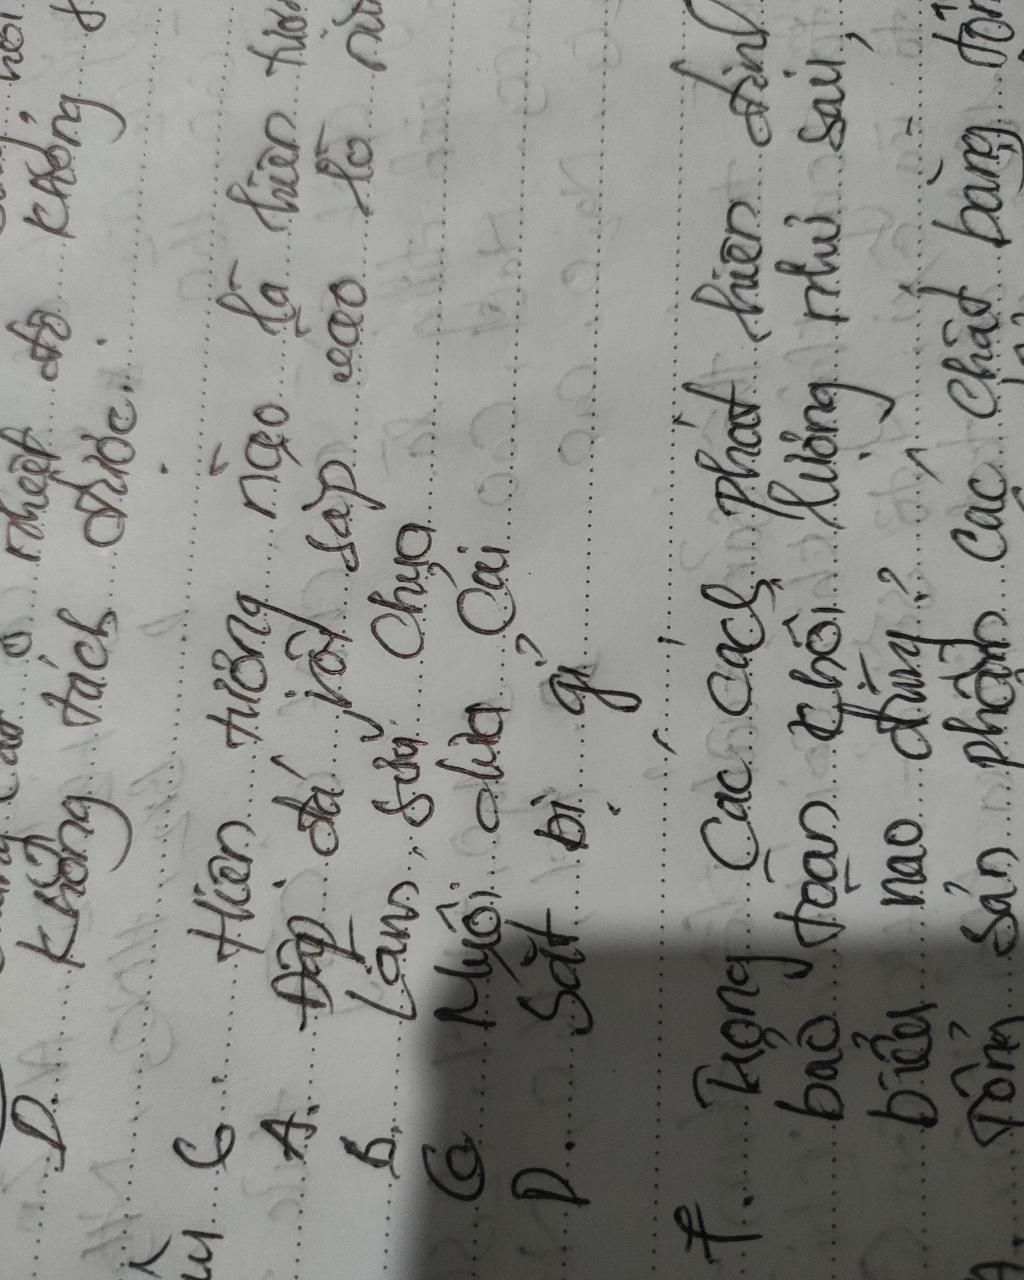 nhiệt độ không
D. Không tách được.
6. Hiện tượng nào là hiện tượn
A. Đập đá vôi sắp vào lò nu
B. Làm sữa chua
C Muối dưa cải
D. Sắt bị gỉ
7. Trong các cách phát hiện định
bảo toàn khối lượng như sau,
biểu nao đúng?
Tổng sản phẩm các chất bằng tổn